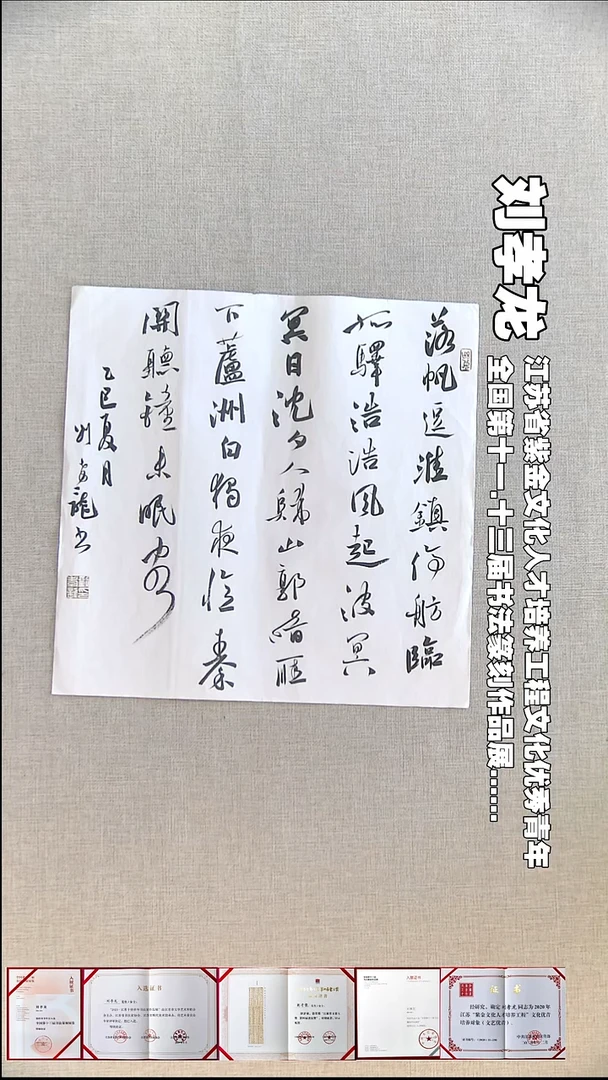 刘孝龙
江苏省紫金文化人才培养工程文化优秀青年
全国第十一.十三届书法篆刻作品展......
落帆逗淮鎮停舫臨
孤驛浩浩風起波冥
冥日沈夕人歸山郭暗雁
下蘆洲白獨夜憶秦
關聽鐘未眠客
乙巳夏月
刘孝龍书
入选证书
证书
经研究，确定刘孝龙同志为2020年
江苏“紫金文化人才培养工程”文化优青
培养对象（文艺优青）。